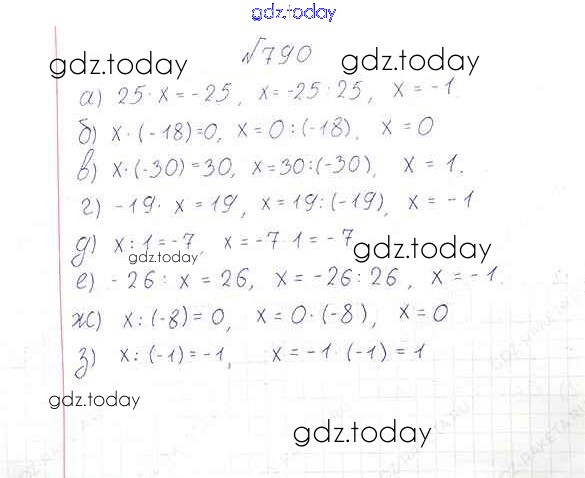 gdz.today
№790
gdz.today gdz.today
а) 25·x=-25, x=-25:25, x=-1
б) x·(-18)=0, x=0:(-18), x=0
в) x·(-30)=30, x=30:(-30), x=1.
г) -19·x=19, x=19:(-19), x=-1
д) x:1=-7, x=-7·1=-7
gdz.today gdz.today
е) -26:x=26, x=-26:26, x=-1.
ж) x:(-8)=0, x=0·(-8), x=0
з) x:(-1)=-1, x=-1·(-1)=1
gdz.today
gdz.today